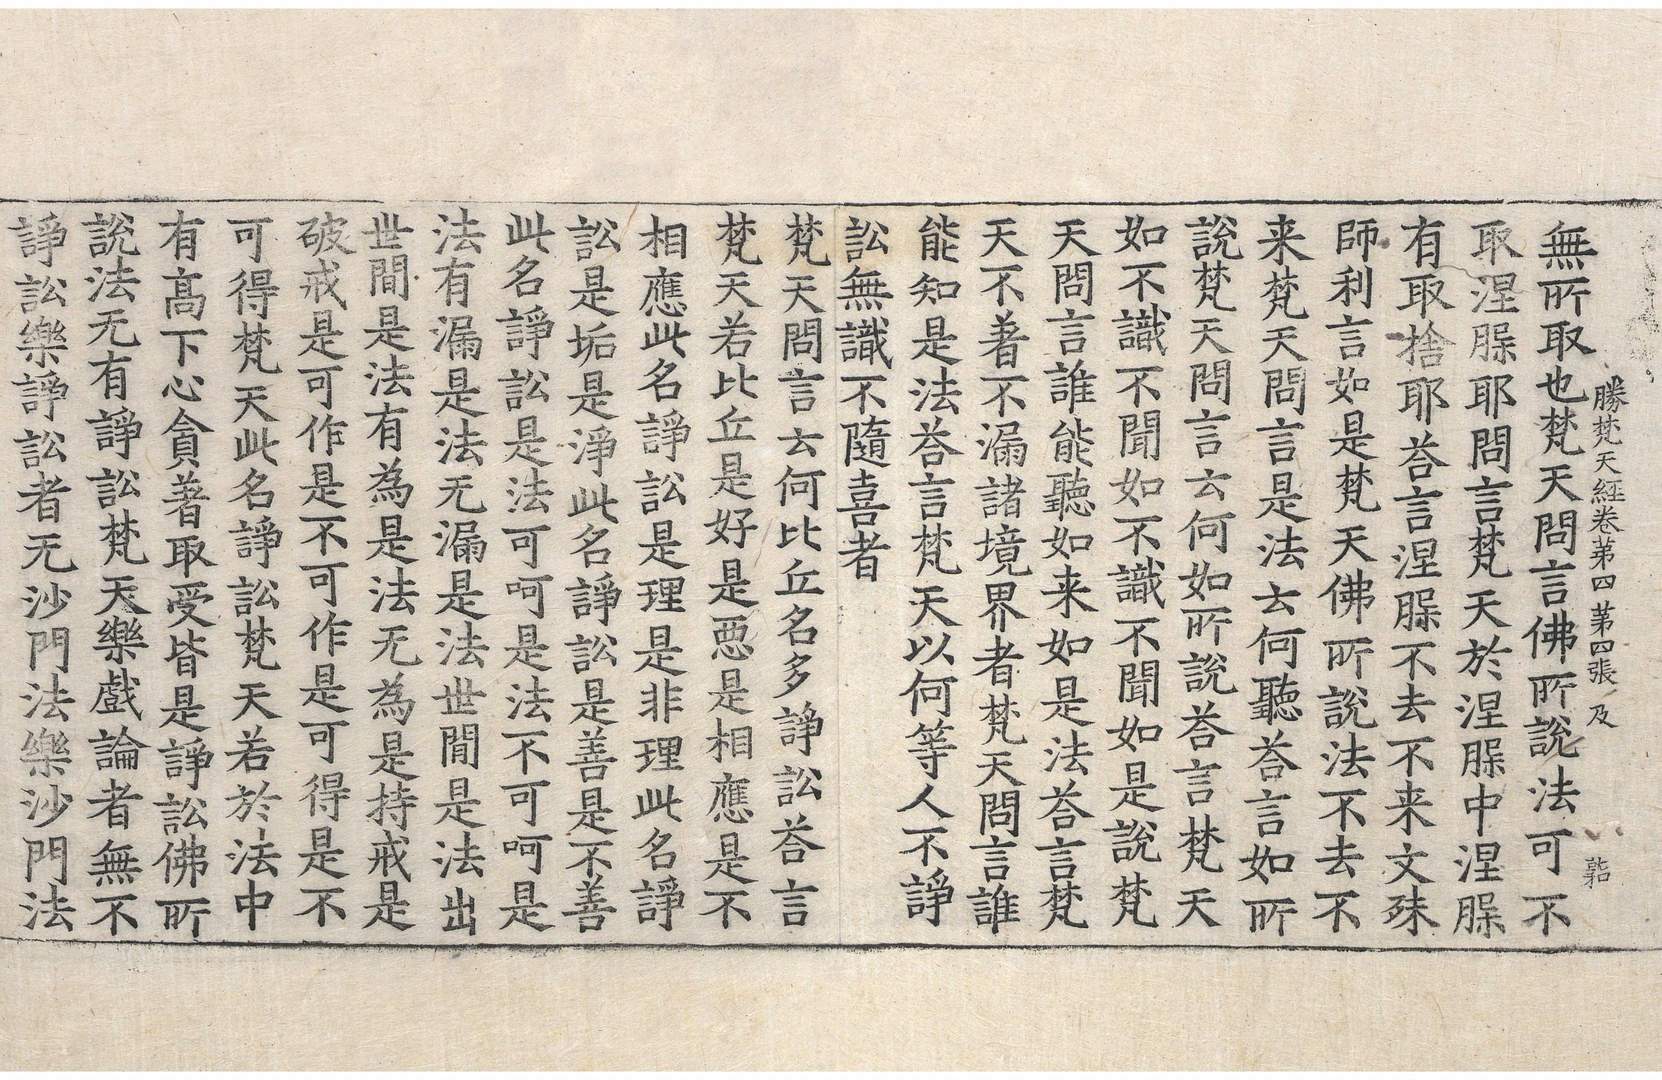 勝梵天経卷苐四 苐四張 及
無所取也梵天問言佛所說法可不
取涅槃耶問言梵天於涅槃中涅槃
有取捨耶荅言涅槃不去不来文殊
師利言如是梵天佛所說法不去不
来梵天問言是法云何聽荅言如所
說梵天問言云何如所說荅言梵天
如不識不聞如不識不聞如是說梵
天問言誰能聽如来如是法荅言梵
天不著不漏諸境界者梵天問言誰
能知是法荅言梵天以何等人不諍
訟無識不隨喜者
梵天問言云何比丘名多諍訟荅言
梵天若比丘是好是惡是相應是不
相應此名諍訟是理是非理此名諍
訟是垢是淨此名諍訟是善是不善
此名諍訟是法可呵是法不可呵是
法有漏是法无漏是法世間是法出
世間是法有為是法无為是持戒是
破戒是可作是不可作是可得是不
可得梵天此名諍訟梵天若於法中
有髙下心貪著取受皆是諍訟佛所
說法无有諍訟梵天樂戲論者無不
諍訟樂諍訟者无沙門法樂沙門法